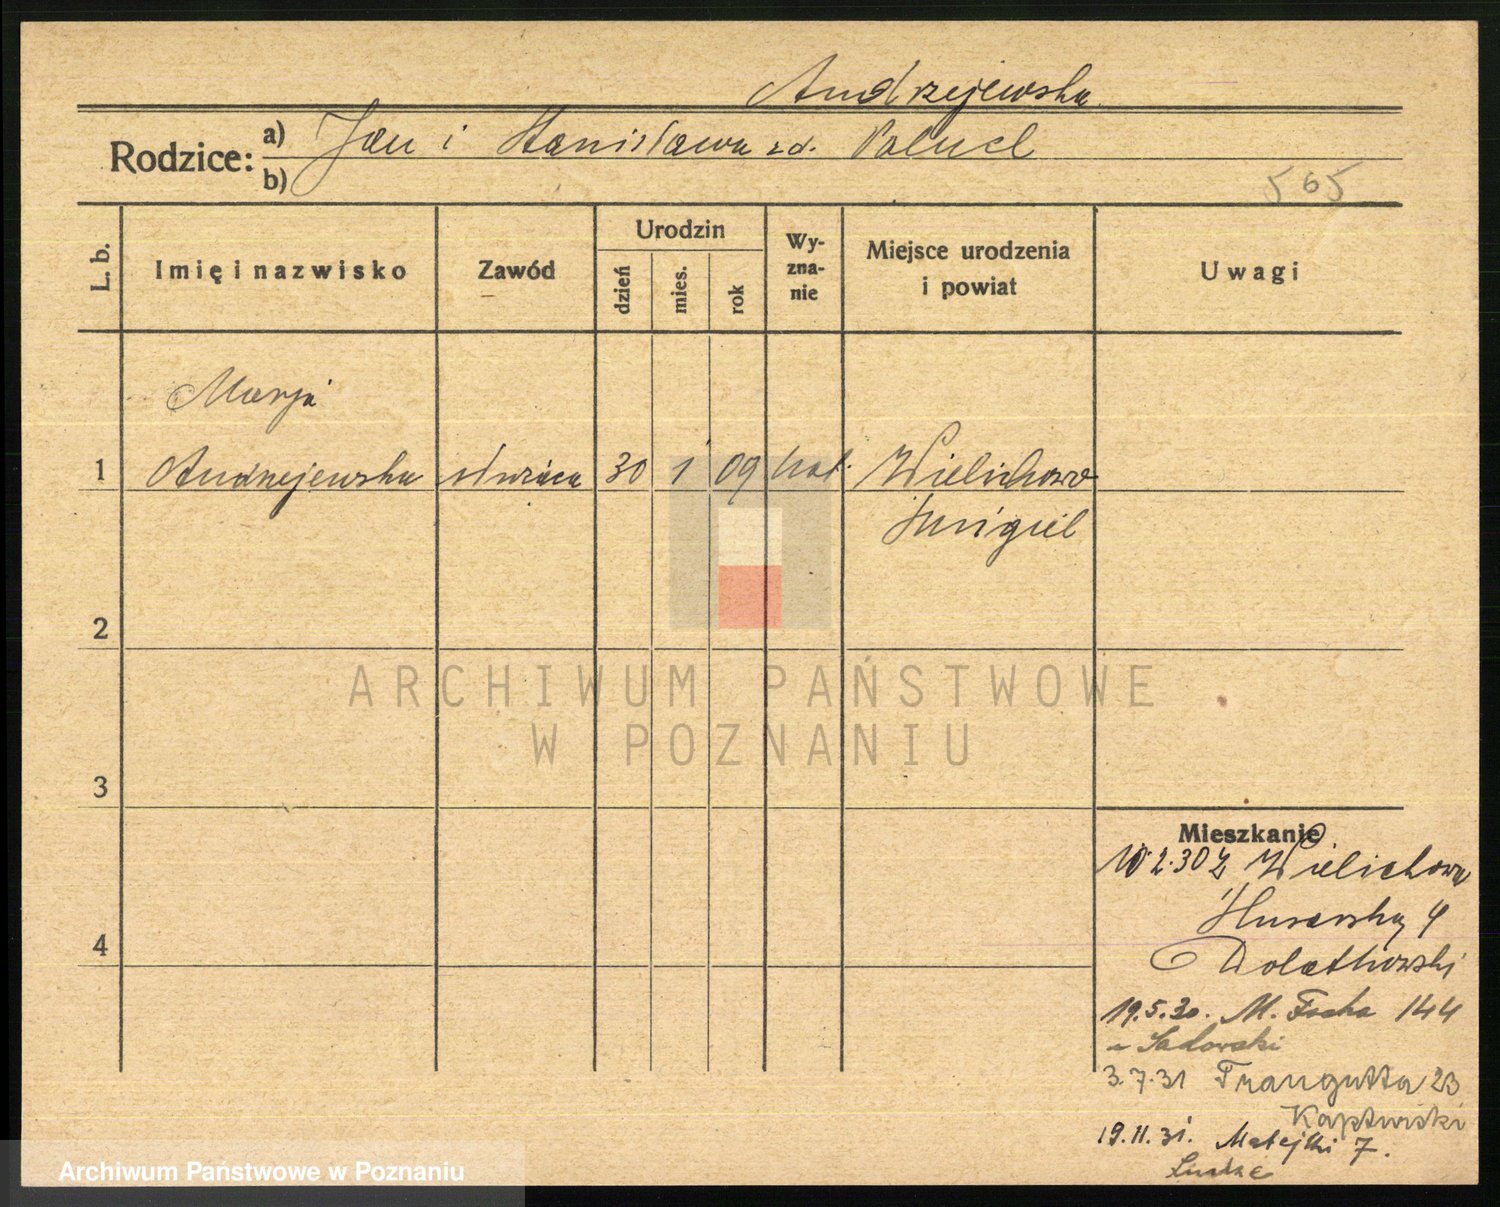 Andrzejewska
Rodzice: a) Jan i Stanisława zd. Paluch
b)
565
L. b. Imię i nazwisko Zawód Urodzin dzień mies. rok Wy-zna-nie Miejsce urodzenia i powiat Uwagi
Marja
1 Andrzejewska służąca 30 1 09 kat. Wielichowo
Śmigiel
2
ARCHIWUM PAŃSTWOWE
W POZNANIU
3
Mieszkanie
10.2.30 z Wielichowa
Husarska 4
Dolatkowski
4
19.5.30. M. Focha 144
u Sadowski
3.7.31 Traugutta 23
19.11.31. Matejki 7.
Archiwum Państwowe w Poznaniu